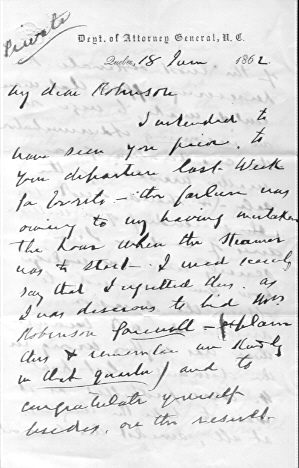 Private
Dept. of Attorney General, U. C.
Quebec, 18 June 1862.
My dear Robinson
I intended to
have seen you prior to
your departure last Week
for Toronto – the failure was
owing to my having mistaken
the hour when the Steamer
was to start – I need scarcely
say that I regretted this. as
I was desirous to bid Mrs
Robinson farewell – (explain
this & remember me kindly
in that quarter) and to
congratulate yourself
besides, on the result